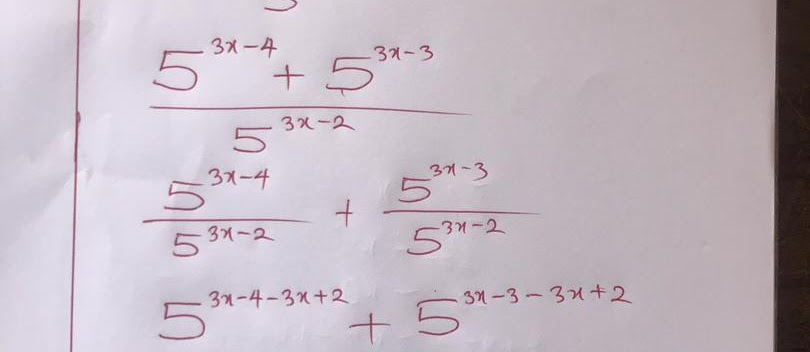 5^{3x-4} + 5^{3x-3}
5^{3x-2}
5^{3x-4} + 5^{3x-3}
5^{3x-2} 5^{3x-2}
5^{3x-4-3x+2} + 5^{3x-3-3x+2}